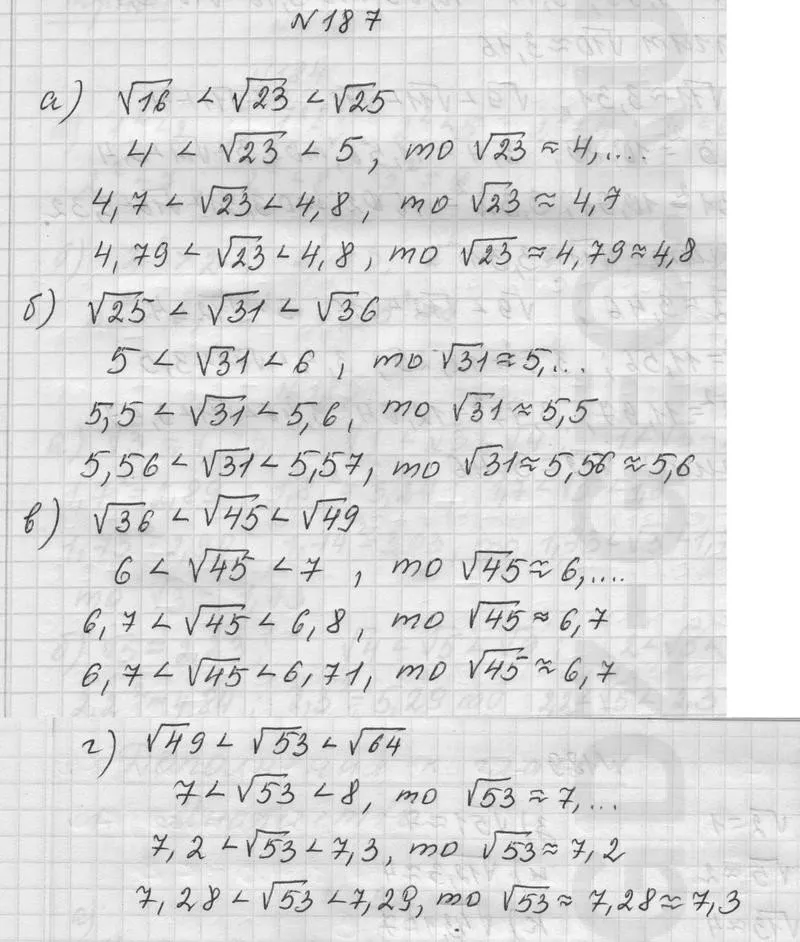 №187
а) √16 < √23 < √25
4 < √23 < 5, то √23 ≈ 4,....
4,7 < √23 < 4,8, то √23 ≈ 4,7
4,79 < √23 < 4,8, то √23 ≈ 4,79 ≈ 4,8
б) √25 < √31 < √36
5 < √31 < 6, то √31 ≈ 5,...
5,5 < √31 < 5,6, то √31 ≈ 5,5
5,56 < √31 < 5,57, то √31 ≈ 5,56 ≈ 5,6
в) √36 < √45 < √49
6 < √45 < 7, то √45 ≈ 6,....
6,7 < √45 < 6,8, то √45 ≈ 6,7
6,7 < √45 < 6,71, то √45 ≈ 6,7
г) √49 < √53 < √64
7 < √53 < 8, то √53 ≈ 7,...
7,2 < √53 < 7,3, то √53 ≈ 7,2
7,28 < √53 < 7,29, то √53 ≈ 7,28 ≈ 7,3